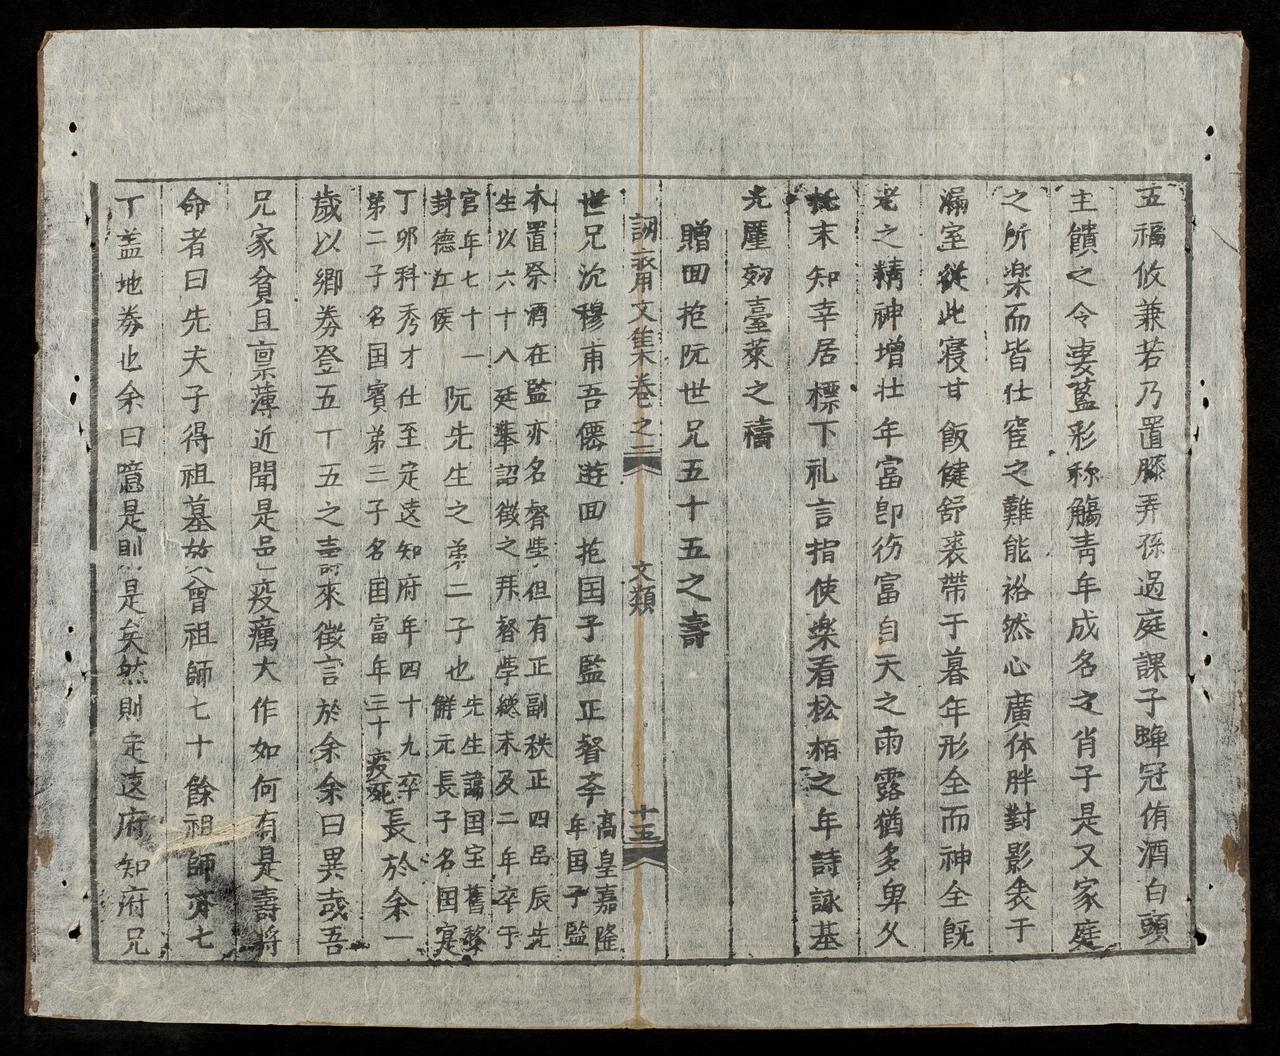 五福攸兼若乃置膝弄孫過庭課子睟冠侑酒白頭
主饋之令妻藍彩称觴青年成名之肖子是又家庭
之所楽而皆仕宦之難能裕然心廣体胖對影衾于
漏室從此寝甘飯健舒裘帶于暮年形全而神全既
老之精神增壮年富即彷富自天之雨露猶多卑久
忝末知幸居標下礼言指使楽看松栢之年詩詠基
光厪効臺萊之禱
贈回抱阮世兄五十五之壽
訒齋文集卷之二 文類 十五
世兄沈穆甫吾僊遊回抱国子監正督斈
高皇嘉隆
年国子監
本置祭酒在監亦名督斈但有正副秩正四品辰先
生以六十八延挙詔徵之拜督斈總末及二年卒于
官年七十一阮先生之弟二子也
先生諱国宝舊黎
觧元長子名国寔
封德江侯
丁卯科秀才仕至定远知府年四十九卒
第二子名国賓弟三子名国富年三十疫死
長於余一
歲以郷券登五丁五之壽來徵言於余余曰異哉吾
兄家貧且禀薄近聞是邑疫癘大作如何有是壽将
命者曰先夫子得祖墓故曾祖師七十餘祖師亦七
丁盖地券也余曰噫是則是矣然則定远府知府兄